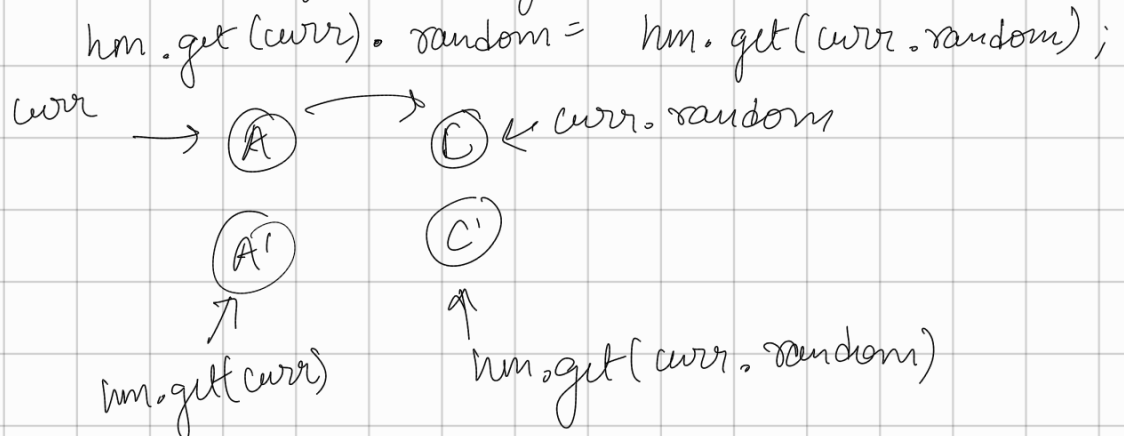 hm.get(curr).random = hm.get(curr.random);
curr
A C curr.random
A' C'
hm.get(curr) hm.get(curr.random)